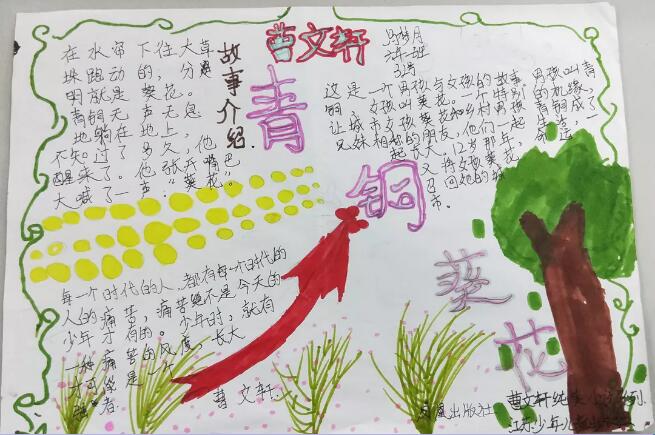 曹文轩
青铜葵花
故事介绍
六年二班
在水帘下往大草
珠跑动的，分
明就是葵花。
青铜无声无息
地躺在地上，
不知过了多久，他
醒来了。他张开嘴巴
大喊了一声：“葵花”。
这是一个男孩与女孩的故事。男孩叫青
铜，女孩叫葵花。一个特别的机缘，
让城市女孩葵花和乡村男孩青铜成了
兄妹相称的朋友，他们一起生活，一
起长大。12岁那年，命运
又将女孩葵花
召回她的城
市。
每一个时代的人，都有每一个时代的
人的痛苦，痛苦绝不是今天的
少年才有的。少年时，就有
一种痛苦的风度，长大
才可能是一个
强者
曹文轩
出版社
曹文轩纯美小说系列
江苏少年儿童出版社